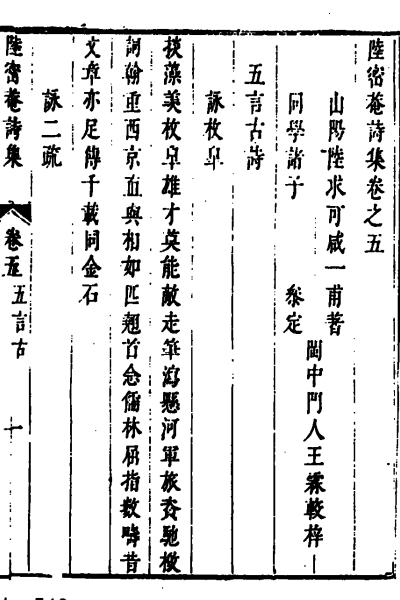 陸密菴詩集卷之五
山陽陸求可咸一甫著
同學諸子 叅定
閩中門人王霖較梓
五言古詩
詠枚皐
掞藻美枚皐雄才莫能敵走筆瀉懸河軍旅資馳檄
詞翰重西京直與相如匹翹首念儒林屈指數疇昔
文章亦足傳千載同金石
詠二疏
陸密菴詩集 卷五 五言古 一